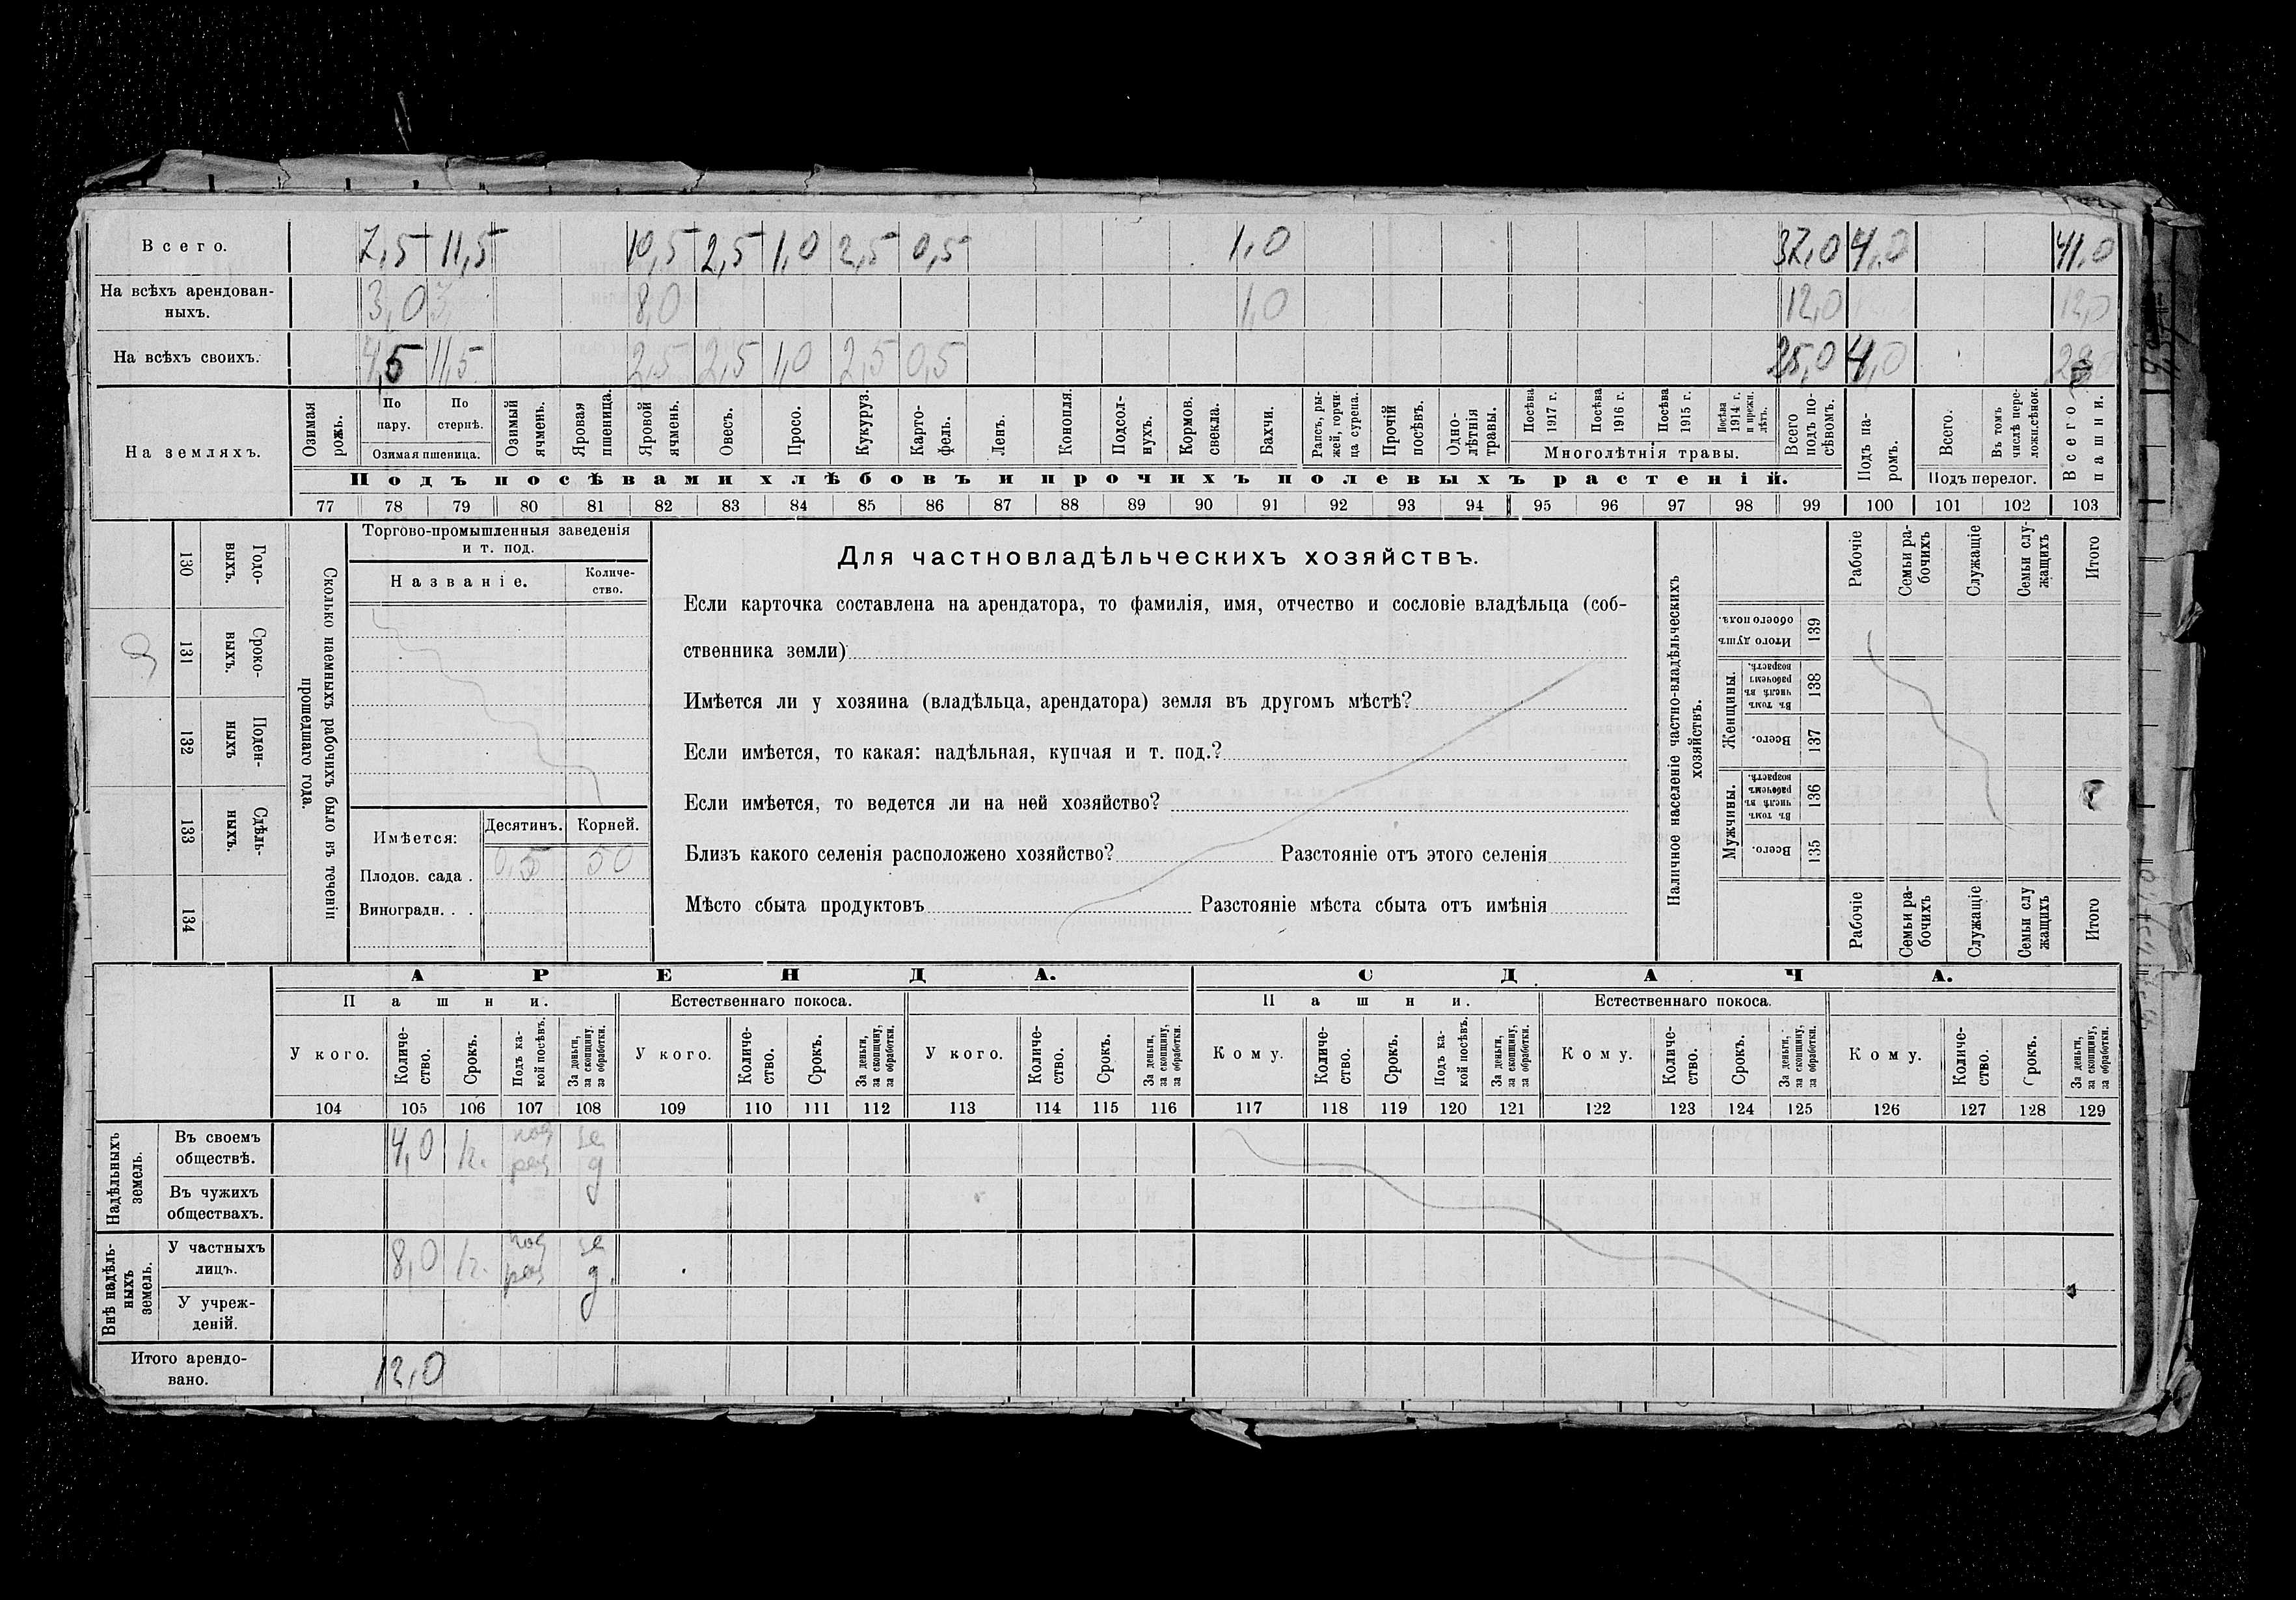 Всего. 7,5 11,5 10,5 2,5 1,0 2,5 0,5 1,0 37,0 4,0 41,0
На всѣхъ арендован-
ныхъ. 3,0 8,0 1,0 12,0 12,0
На всѣхъ своихъ. 4,5 11,5 2,5 2,5 1,0 2,5 0,5 25,0 4,0
На земляхъ.
Озимая рожь.
По пару.
По стернѣ.
Озимая пшеница.
Озимый ячмень.
Яровая пшеница.
Яровой ячмень.
Овесъ.
Просо.
Кукуруз.
Карто-
фель.
Ленъ.
Конопля.
Подсол-
нухъ.
Кормов. свекла.
Бахчи.
Рапсъ, ры-
жей, горчи-
ца сурепа.
Прочій посѣвъ.
Одно-
лѣтнія травы.
Посѣва 1917 г.
Посѣва 1916 г.
Посѣва 1915 г.
Посѣва 1914 г. и прежн. лѣтъ.
Многолѣтнія травы.
Всего подъ по-
сѣвомъ.
Подъ па-
ромъ.
Всего.
Въ томъ числѣ пере-
ложн.сѣнок.
Подъ перелог.
Всего пашни.
Подъ посѣвами хлѣбовъ и прочихъ полевыхъ растеній.
77 78 79 80 81 82 83 84 85 86 87 88 89 90 91 92 93 94 95 96 97 98 99 100 101 102 103
Сколько наемныхъ рабочихъ было въ теченіи
прошедшаго года.
Годо-
выхъ.
130
Сроко-
выхъ.
131
Поден-
ныхъ
132
Сдѣль-
ныхъ.
133
134
Торгово-промышленныя заведенія
и т. под.
Названіе.
Количе-
ство.
Имѣется:
Десятинъ. Корней.
Плодов. сада . 0,5 50
Виноградн. . .
Для частновладѣльческихъ хозяйствъ.
Если карточка составлена на арендатора, то фамилія, имя, отчество и сословіе владѣльца (соб-
ственника земли)
Имѣется ли у хозяина (владѣльца, арендатора) земля въ другомъ мѣстѣ?
Если имѣется, то какая: надѣльная, купчая и т. под.?
Если имѣется, то ведется ли на ней хозяйство?
Близъ какого селенія расположено хозяйство? Разстояніе отъ этого селенія
Мѣсто сбыта продуктовъ Разстояніе мѣста сбыта отъ имѣнія
Наличное населеніе частно-владѣльческихъ
хозяйствъ.
Рабочіе
Семьи ра-
бочихъ
Служащіе
Семьи слу-
жащихъ
Итого
Итого душъ обоего пола.
139
Женщины.
Въ томъ числѣ въ рабочемъ возрастѣ.
138
Всего.
137
Мужчины.
Въ томъ числѣ въ рабочемъ возрастѣ.
136
Всего.
135
Рабочіе
Семьи ра-
бочихъ
Служащіе
Семьи слу
жащихъ
Итого
АРЕНДА. СДАЧА.
Пашни. Естественнаго покоса. Пашни. Естественнаго покоса.
У кого.
Количе-
ство.
Срокъ.
Подъ ка-
кой посѣвъ.
За деньги, за скопщину, за обработки.
У кого.
Количе-
ство.
Срокъ.
За деньги, за скопщину, за обработки.
У кого.
Количе-
ство.
Срокъ.
За деньги, за скопщину, за обработки.
Кому.
Количе-
ство.
Срокъ.
Подъ ка-
кой посѣвъ.
За деньги, за скопщину, за обработки.
Кому.
Количе-
ство.
Срокъ.
За деньги, за скопщину, за обработки.
Кому.
Количе-
ство.
Срокъ.
За деньги, за скопщину, за обработки.
104 105 106 107 108 109 110 111 112 113 114 115 116 117 118 119 120 121 122 123 124 125 126 127 128 129
Надѣльныхъ земель.
Въ своемъ
обществѣ. 4,0 1г.
Въ чужихъ
обществахъ.
Внѣ надѣль-
ныхъ земель.
У частныхъ
лицъ. 8,0 1г.
У учреж-
деній.
Итого арендо-
вано. 12,0